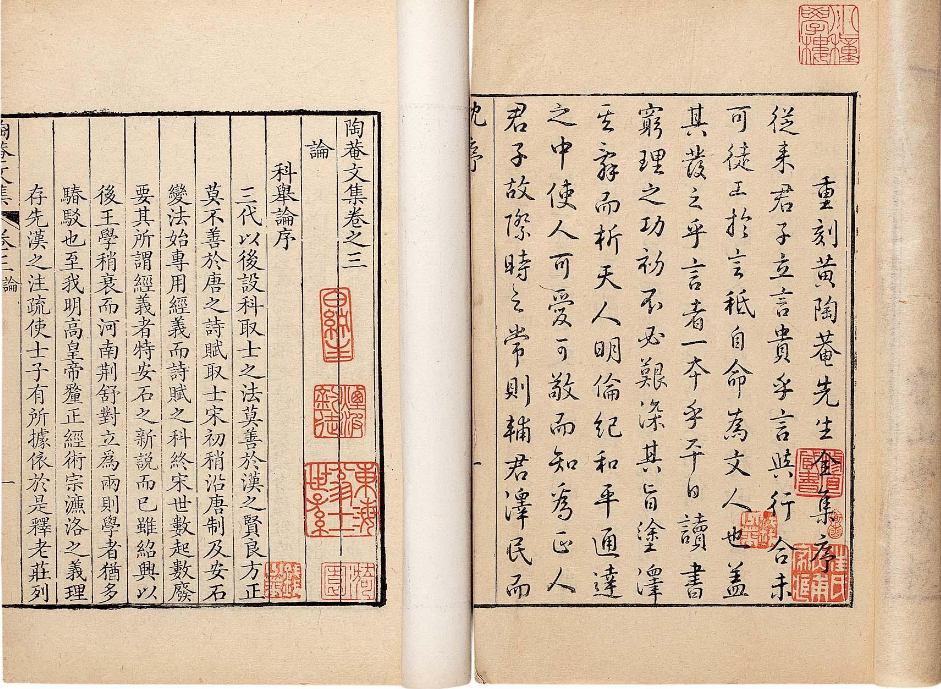 重刻黃陶菴先生全集序
從来君子立言貴乎言與行合未
可徒工於言秪自命為文人也盖
其發之乎言者一本乎平日讀書
窮理之功初不必艱深其旨塗澤
其辭而析天人明倫紀和平通達
之中使人可愛可敬而知為正人
君子故際時之常則輔君澤民而
沈序
一
陶菴文集卷之三
論
科舉論序
三代以後設科取士之法莫善於漢之賢良方正
莫不善於唐之詩賦取士宋初稍沿唐制及安石
變法始專用經義而詩賦之科終宋世數起數廢
要其所謂經義者特安石之新說而已雖紹興以
後王學稍衰而河南荆舒對立為兩則學者猶多
騞駁也至我明高皇帝釐正經術宗濂洛之義理
存先漢之注疏使士子有所據依於是釋老莊列
陶菴文集
卷三論
一